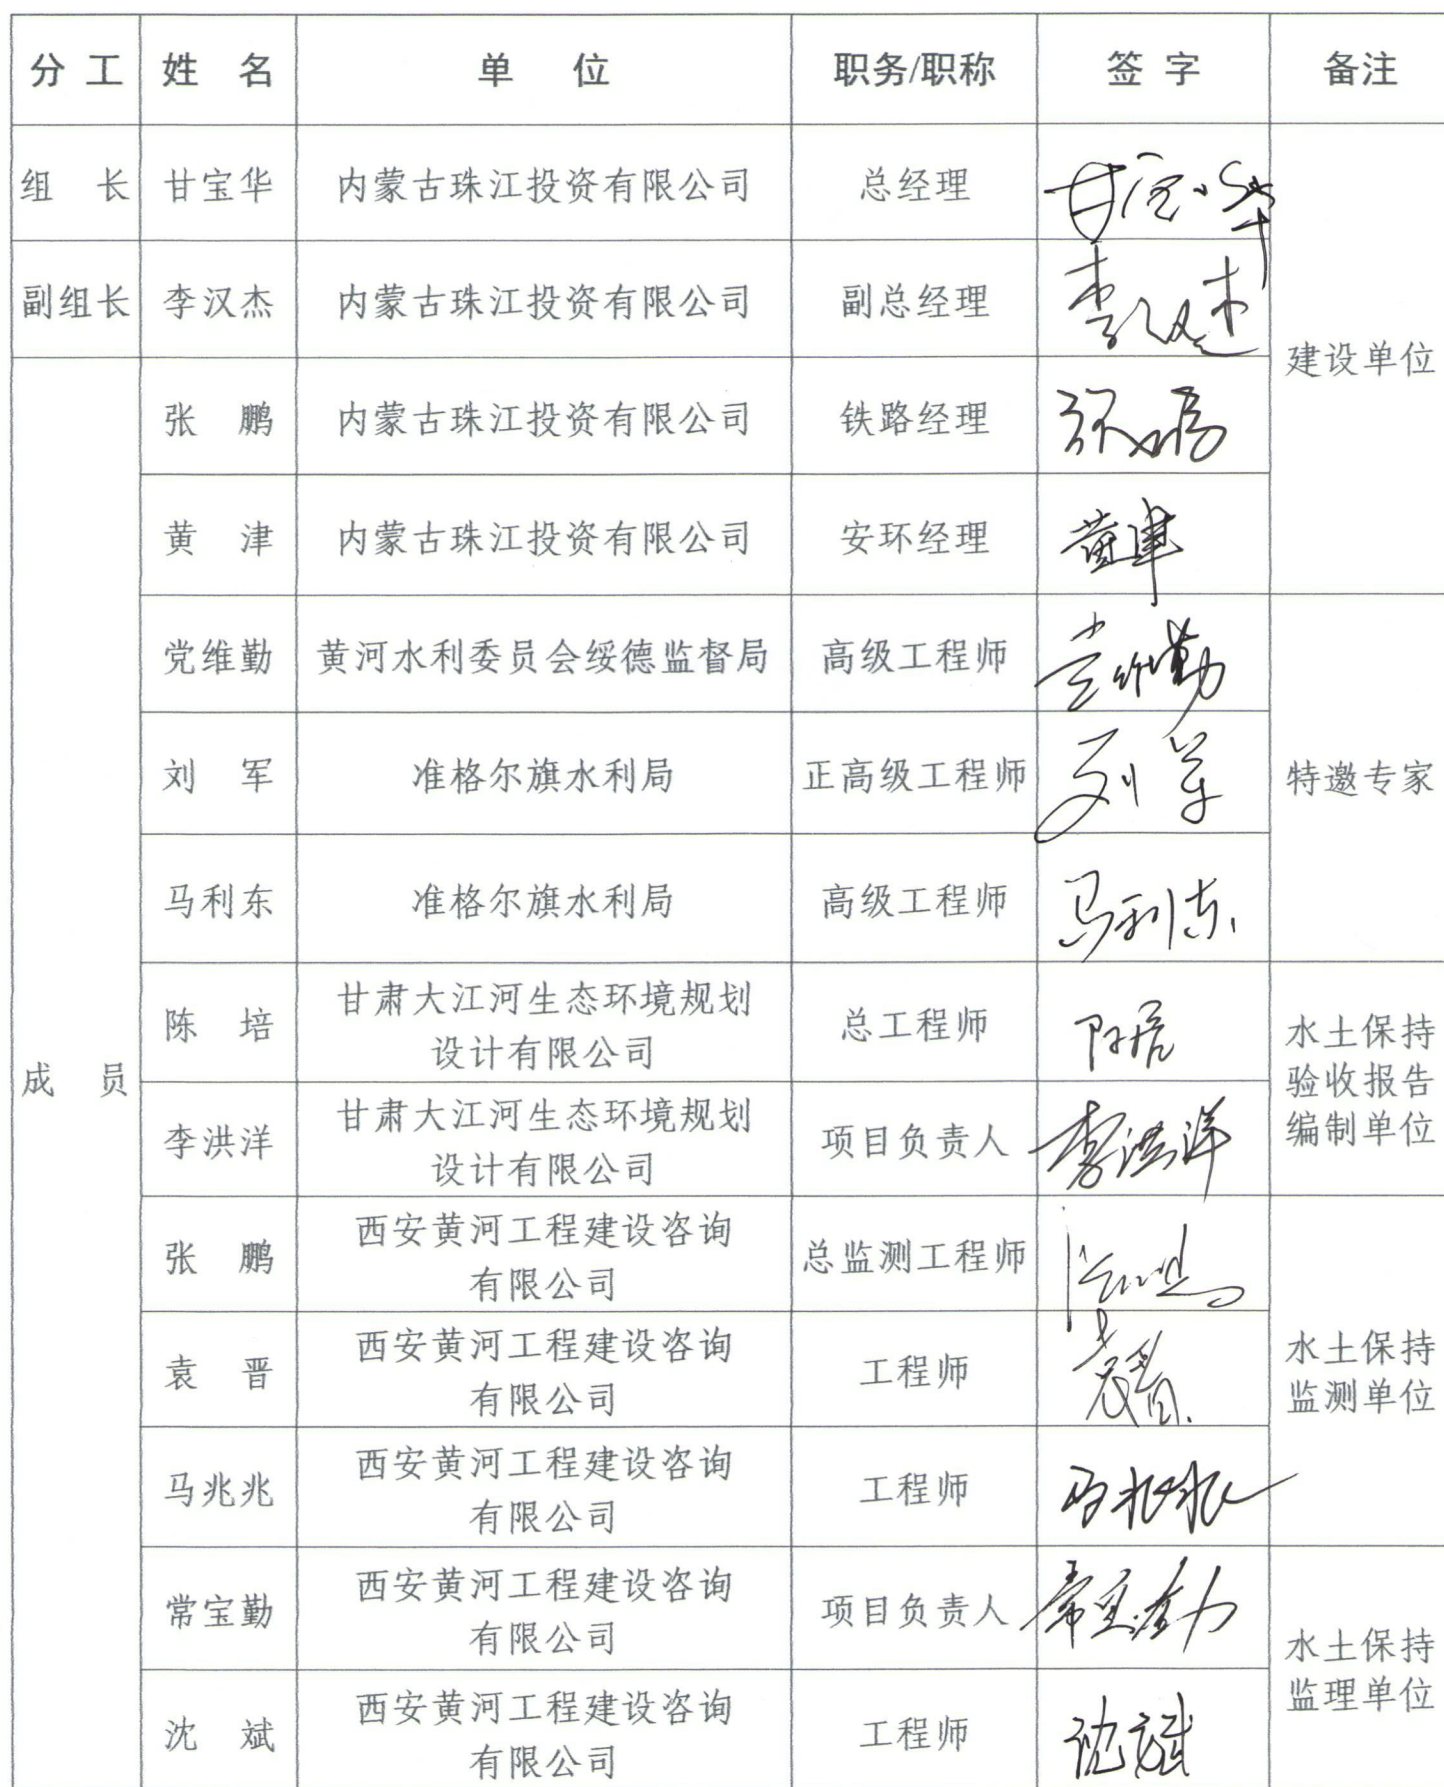 分工 姓名 单位 职务/职称 签字 备注
组长 甘宝华 内蒙古珠江投资有限公司 总经理 甘宝华
副组长 李汉杰 内蒙古珠江投资有限公司 副总经理 李汉杰
建设单位
张鹏 内蒙古珠江投资有限公司 铁路经理 张鹏
黄津 内蒙古珠江投资有限公司 安环经理 黄津
党维勤 黄河水利委员会绥德监督局 高级工程师 党维勤
刘军 准格尔旗水利局 正高级工程师 刘军 特邀专家
马利东 准格尔旗水利局 高级工程师 马利东
成员
陈培 甘肃大江河生态环境规划
设计有限公司 总工程师 陈培
水土保持
验收报告
编制单位
李洪洋 甘肃大江河生态环境规划
设计有限公司 项目负责人 李洪洋
张鹏 西安黄河工程建设咨询
有限公司 总监测工程师
袁晋 西安黄河工程建设咨询
有限公司 工程师 袁晋
水土保持
监测单位
马兆兆 西安黄河工程建设咨询
有限公司 工程师 马兆兆
常宝勤 西安黄河工程建设咨询
有限公司 项目负责人 常宝勤
水土保持
监理单位
沈斌 西安黄河工程建设咨询
有限公司 工程师 沈斌